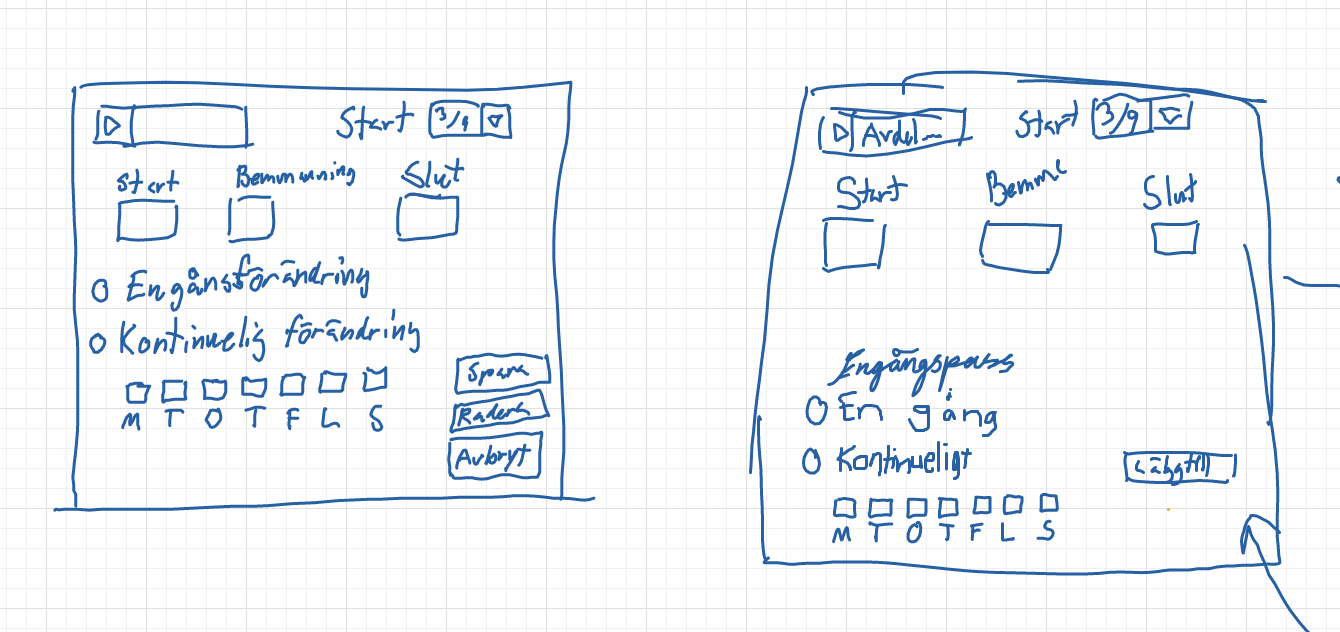 Start 3/9
Start Bemmanning Slut
Engånsförändring
Kontinuelig förändring
M T O T F L S
Spara
Radera
Avbryt
Avdel... Start 3/9
Start Bemma Slut
Engångspass
En gång
Kontinueligt
Lägg till
M T O T F L S